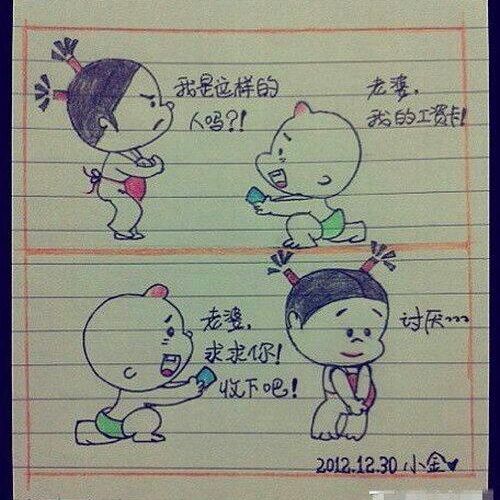 老婆,
我的工资卡!
我是这样的
人吗?!
老婆,
求求你!
收下吧!
讨厌~~~
2012.12.30 小金♥